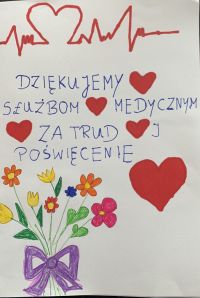 DZIĘKUJEMY
SŁUŻBOM MEDYCZNYM
ZA TRUD I
POŚWIĘCENIE